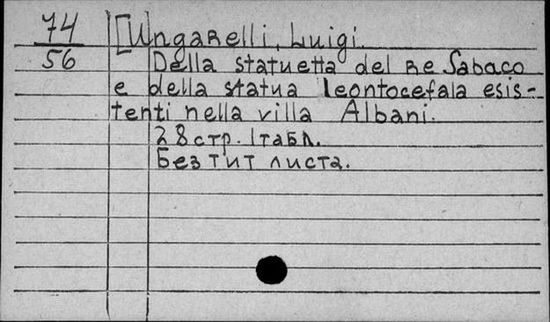 74
56
[Ungarelli, Luigi.
Della statuetta del Re Sabaco
e della statua leontocefala esis-
tenti nella villa Albani.
28 стр. 1 табл.
Без тит листа.